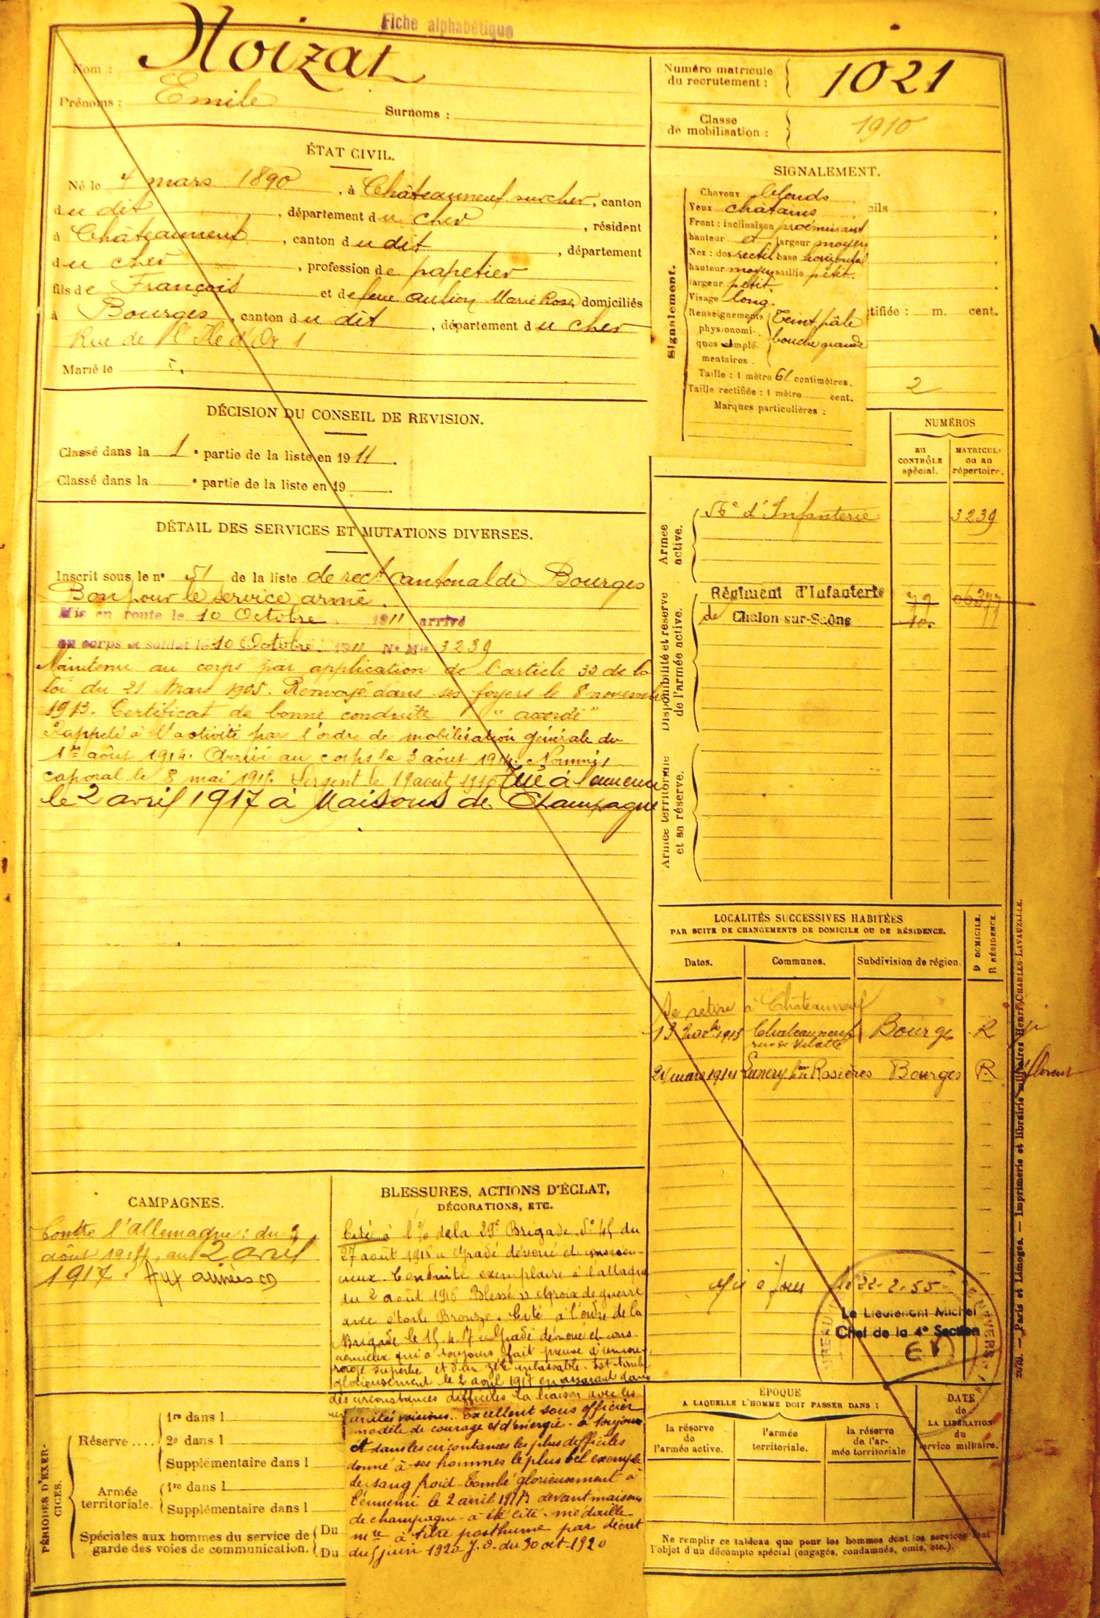 Fiche alphabétique
Nom : Moizat
Prénoms : Emile Surnoms :
Numéro matricule du recrutement : 1021
Classe de mobilisation : 1910
ÉTAT CIVIL.
Né le 4 mars 1890, à Châteauneuf sur cher, canton
du dit, département du cher, résident
à Châteauneuf, canton du dit, département
du cher, profession de papetier
fils de François et de feue Marie Rose, domiciliés
à Bourges, canton du dit, département du cher
Rue de l'Ile d'Or 1
Marié le
SIGNALEMENT.
Signalement.
Cheveux blonds
Yeux châtains
Front : inclinaison proéminent
hauteur et largeur moyen
Nez : dos rectil base horizontal
hauteur moyen saillie petit
largeur petit.
Visage long.
Renseignements physionomiques complémentaires. Teint pâle
bouche grande
Taille : 1 mètre 61 centimètres.
Taille rectifiée : 1 mètre cent.
Marques particulières :
cils
tifiée : m. cent.
2
DÉCISION DU CONSEIL DE REVISION.
Classé dans la 1e partie de la liste en 1911.
Classé dans la e partie de la liste en 19
NUMÉROS
AU CONTRÔLE spécial.
MATRICULE ou au répertoire.
Armée active.
d'Infanterie 3239
Disponibilité et réserve de l'armée active.
Régiment d'Infanterie
de Chalon-sur-Saône
Armée territoriale et sa réserve.
DÉTAIL DES SERVICES ET MUTATIONS DIVERSES.
Inscrit sous le n° 51 de la liste de rect cantonal de Bourges
Bon pour le service armé.
Mis en route le 10 Octobre 1911 arrivé
au corps et soldat le 10 Octobre 1911 No Mle 3239
Maintenu au corps par application de l'article 33 de la
loi du 21 Mars 1905. Renvoyé dans ses foyers le 8 novembre
1913. Certificat de bonne conduite "accordé"
Rappelé à l'activité par l'ordre de mobilisation générale du
1er août 1914. Arrivé au corps le 3 août 1914. Nommé
caporal le 8 mai 1915. Sergent le 19 août Tué à l'ennemi
le 2 avril 1917 à Maisons de Champagne
LOCALITÉS SUCCESSIVES HABITÉES
PAR SUITE DE CHANGEMENTS DE DOMICILE OU DE RÉSIDENCE.
Dates. Communes. Subdivision de région. D DOMICILE. R RÉSIDENCE.
Se retire à Châteauneuf
Châteauneuf Bourges R
Lunery Rosières Bourges R
CAMPAGNES.
Contre l'Allemagne : du 3
août 1914 au 2 avril
1917. Aux armées
BLESSURES, ACTIONS D'ÉCLAT,
DÉCORATIONS, ETC.
Cité à l'O/ de la 29e Brigade No 45 du
27 août 1915
Conduite exemplaire à l'attaque
du 2 août 1915 Blessé croix de guerre
avec étoile Bronze. Cité à l'ordre de la
Brigade
qui a toujours fait preuve d'un
superbe et d'un zèle inlassable. Est tombé
glorieusement le 2 avril 1917 en assurant dans
des circonstances difficiles la liaison avec les
unités voisines. Excellent sous officier
modèle de courage et d'énergie. a toujours
et dans les circonstances les plus difficiles
donné à ses hommes le plus bel exemple
de sang froid. Tombé glorieusement à
l'ennemi le 2 avril 1917 devant maisons
de champagne. a été cité. médaille
mre à titre posthume par décret
du 5 juin 1920 J.O. du 30 oct 1920
Le Lieutenant Michel
Chef de la 4e Section
PÉRIODES D'EXERCICES.
Réserve....
1re dans l
2e dans l
Supplémentaire dans l
Armée territoriale.
1re dans l
Supplémentaire dans l
Spéciales aux hommes du service de garde des voies de communication. Du
Du
ÉPOQUE
A LAQUELLE L'HOMME DOIT PASSER DANS :
la réserve de l'armée active.
l'armée territoriale.
la réserve de l'armée territoriale
DATE de LA LIBÉRATION du service militaire.
Ne remplir ce tableau que pour les hommes dont les services font
l'objet d'un décompte spécial (engagés, condamnés, omis, etc.).
Paris et Limoges. — Imprimerie et librairie militaires Henri CHARLES-LAVAUZELLE.